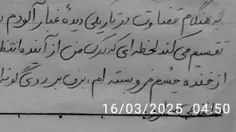 به هنگام قضاوت در تاریکی دیدهٔ غبار آلودم
تقسیم می‌کند لحظه‌ای که بدن من از آینده انتظار
از خنده چشم فرو بسته ام، برف بر روی گونه
16/03/2025 04:50